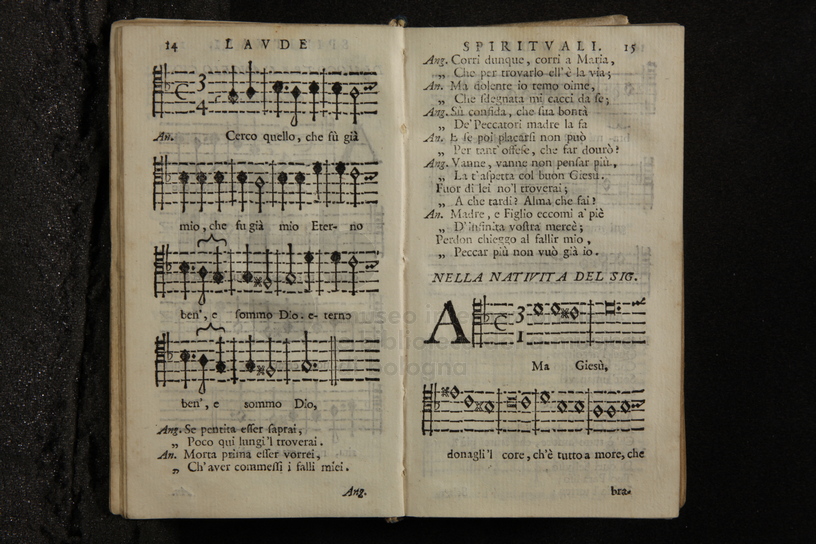 14 LAVDE
An. Cerco quello, che sù già
mio, che fu già mio Eter- no
ben', e sommo Dio. e- terno
ben', e sommo Dio,
Ang. Se pentita esser saprai,
„ Poco qui lungi'l troverai.
An. Morta prima esser vorrei,
„ Ch'aver commessi i falli miei.
Ang.
SPIRITVALI. 15
Ang. Corri dunque, corri a Maria,
„ Che per trovarlo ell'è la via;
An. Ma dolente io temo oime,
„ Che sdegnata mi cacci da se;
Ang. Sù confida, che sua bontà
„ De'Peccatori madre la fa
An. E se poi placarsi non può
„ Per tant'offese, che far dourò?
Ang. Vanne, vanne non pensar più,
„ La t'aspetta col buon Giesu.
Fuor di lei no'l troverai;
„ A che tardi? Alma che fai?
An. Madre, e Figlio eccomi a' piè
„ D'infinita vostra mercè;
Perdon chieggo al fallir mio,
„ Peccar più non vuò già io.
NELLA NATIVITA DEL SIG.
A
Ma Giesù,
donagli'l core, ch'è tutto a more, che
bra-